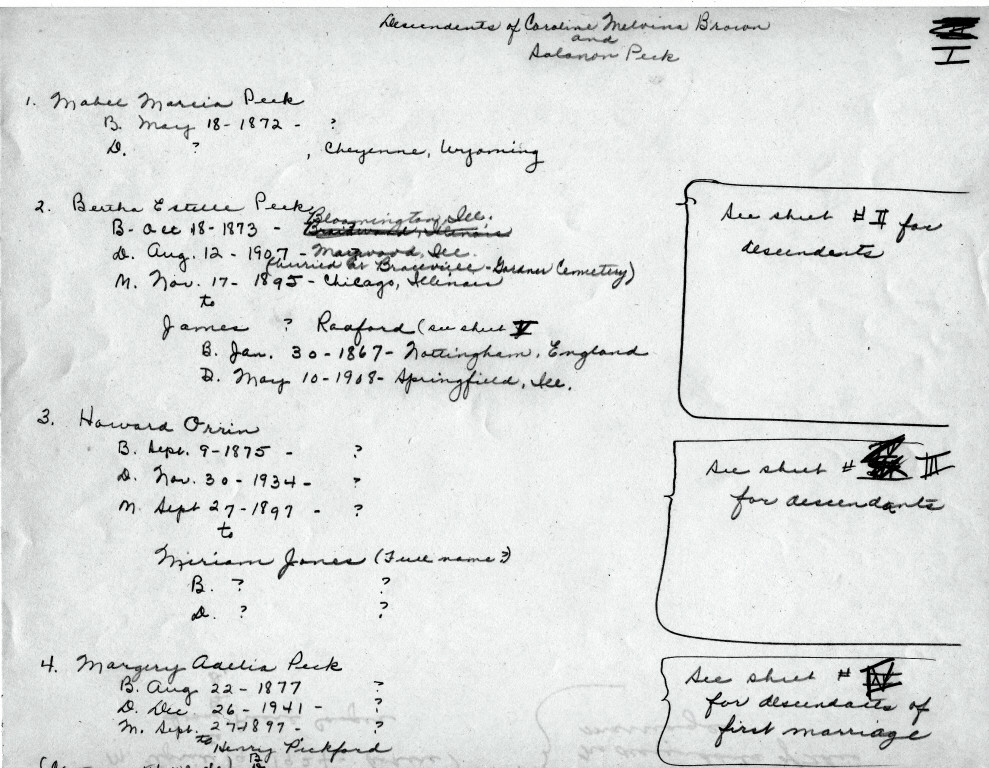 Descendents of Caroline Melvina Brown
and
Solomon Peck
I
1. Mabel Marcia Peck
B. May 18-1872 - ?
D. ? , Cheyenne, Wyoming
2. Bertha Estelle Peck
Bloomington, Ill.
B- Oct 18-1873 - Braidwood, Illinois
D. Aug. 12 - 1907 - Maywood, Ill.
(buried at Braceville - Gardner Cemetery)
M. Nov. 17- 1895 - Chicago, Illinois
to
James ? Radford (see sheet V
B. Jan. 30-1867- Nottingham, England
D. May 10-1908- Springfield, Ill.
See sheet # II for
descendents
3. Howard Orrin
B. Sept. 9-1875 - ?
D. Nov. 30-1934 - ?
M. Sept 27-1897 - ?
to
Miriam Jones (Full name?)
B. ? ?
D. ? ?
See sheet # III
for descendants
4. Margery Adelia Peck
B. Aug 22-1877 ?
D. Dec 26-1941- ?
M. Sept. 27-1897- ?
to Henry Pickford
See sheet # IV
for descendants of
first marriage